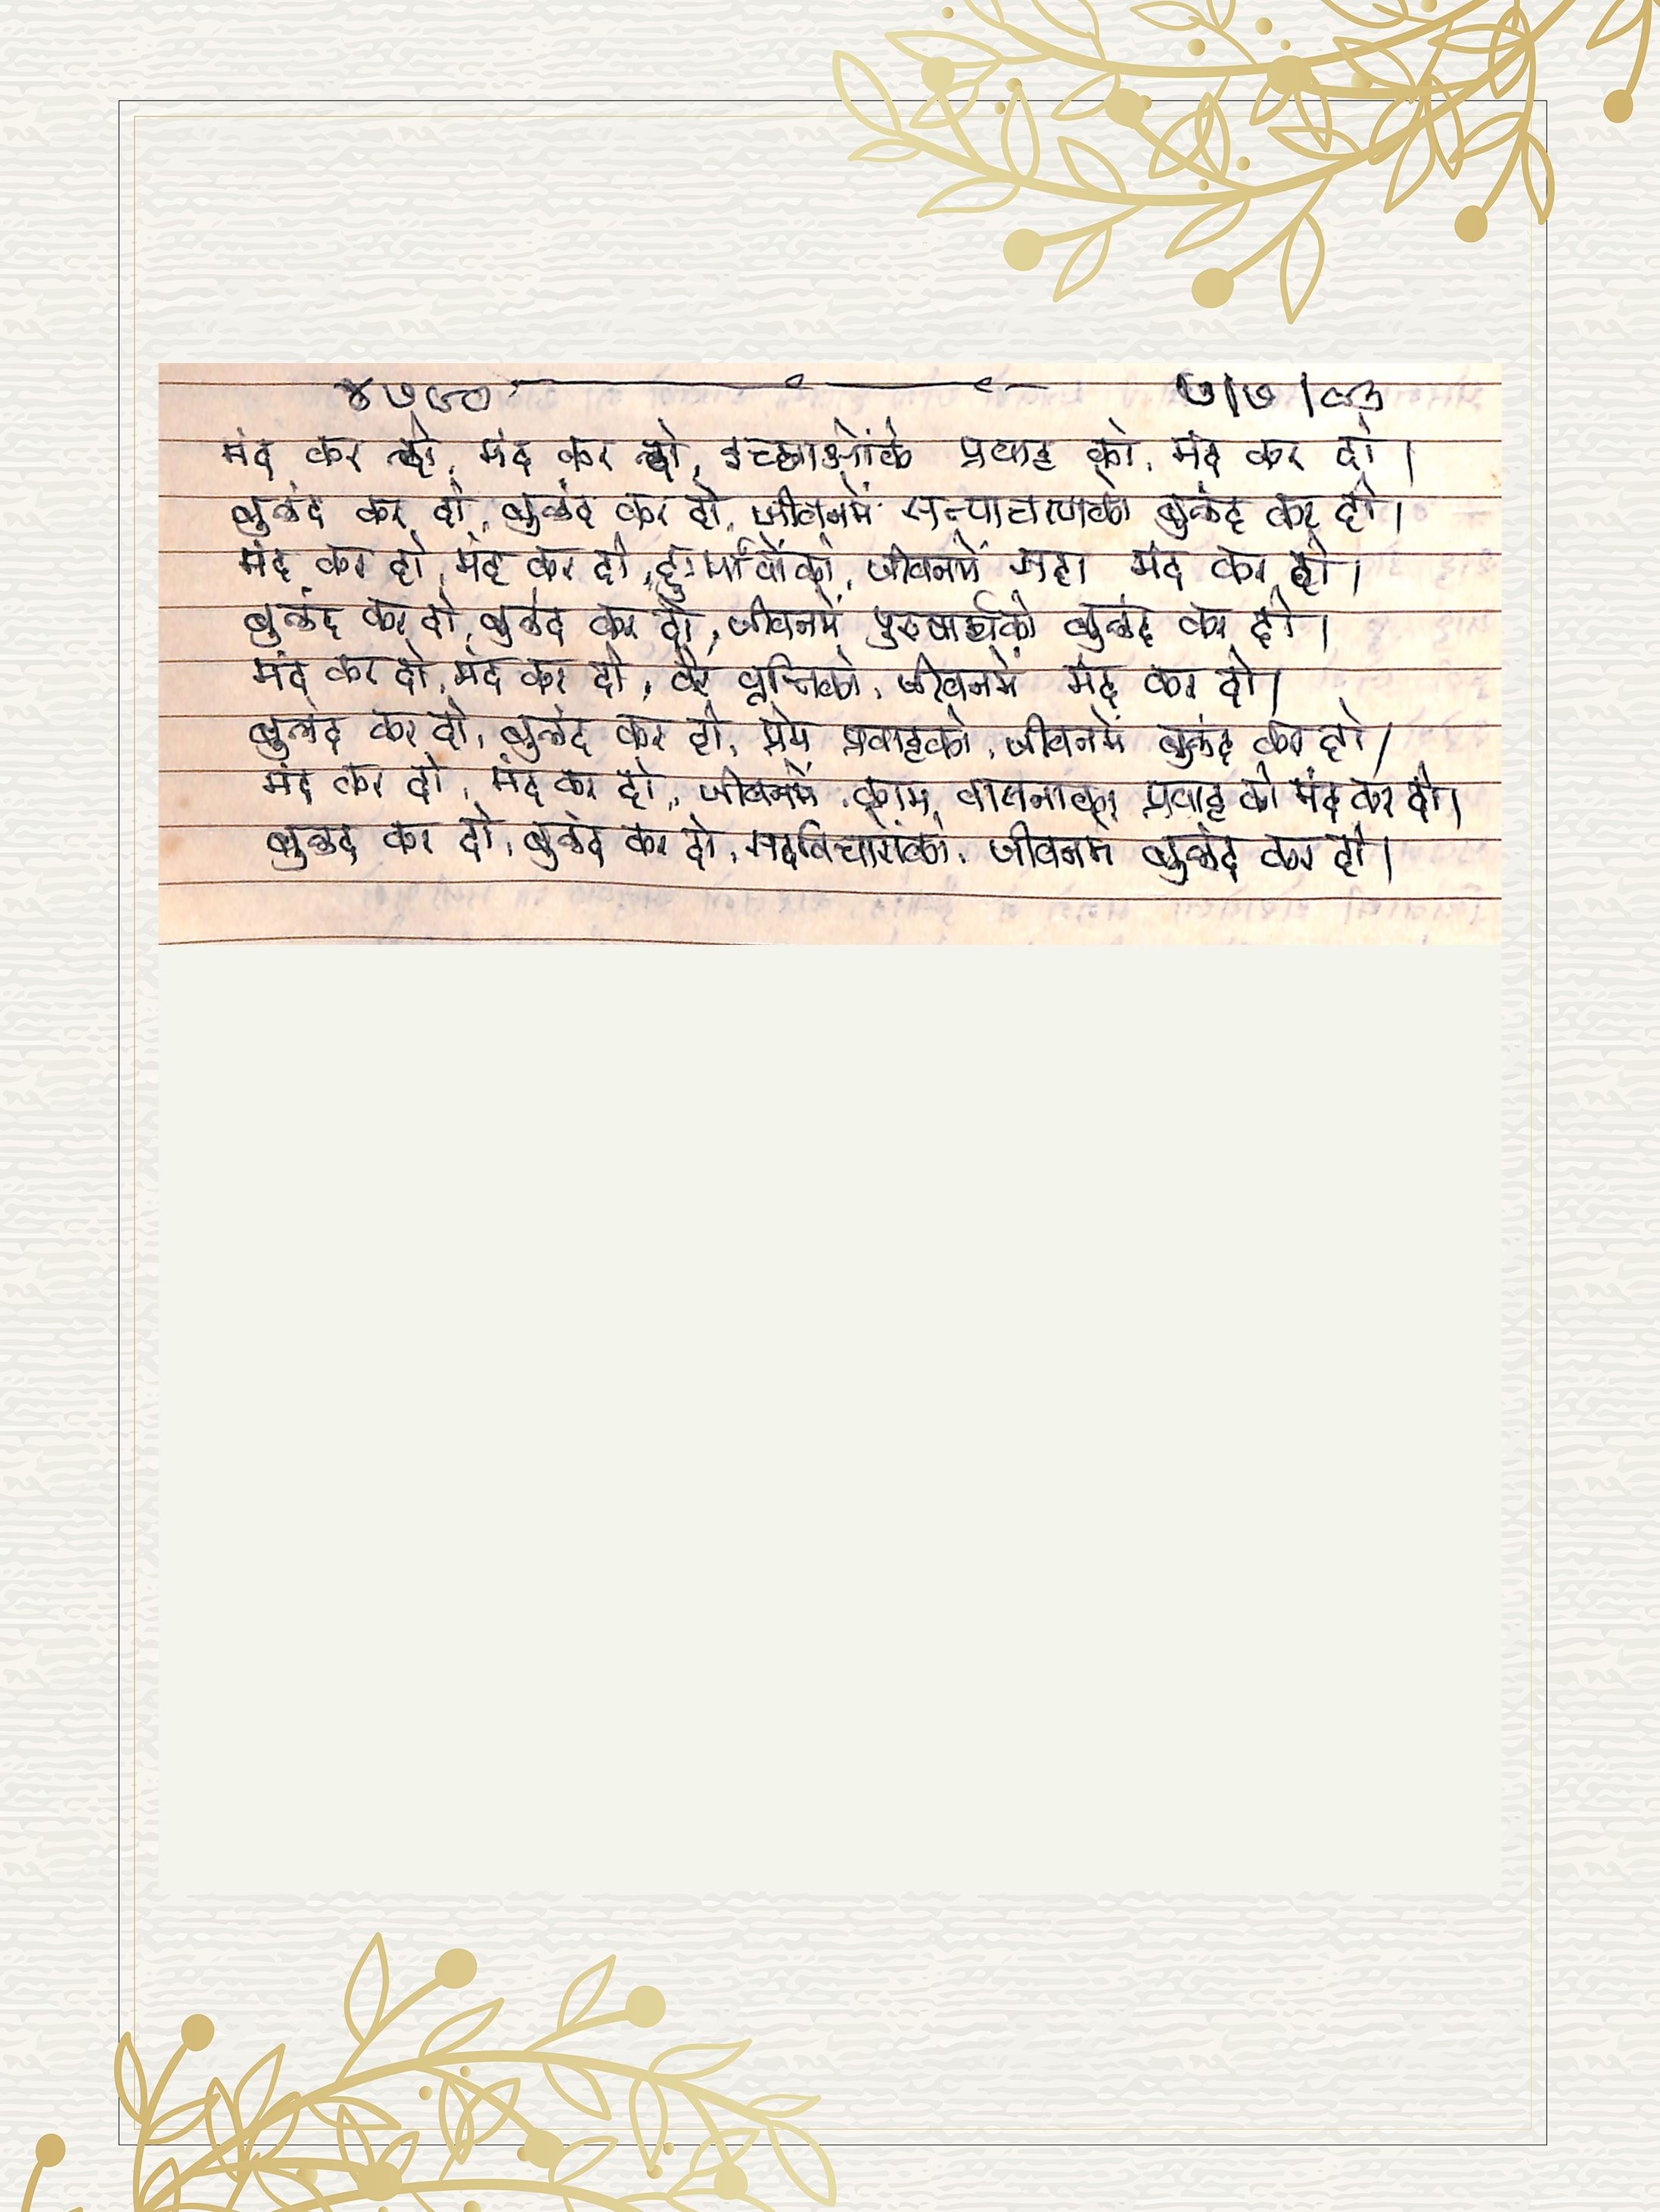 ४७९०
मंद कर दो, मंद कर दो, इच्छाओंके प्रवाह को, मंद कर दो।
बुलंद कर दो, बुलंद कर दो, जीवनमें सत्याचरणको बुलंद कर दो।
मंद कर दो, मंद कर दो, दुःर्भावोंको, जीवनमें सदा मंद कर दो।
बुलंद कर दो, बुलंद कर दो, जीवनमें पुरुषार्थको बुलंद कर दो।
मंद कर दो, मंद कर दो, वैर वृत्तिको, जीवनमें मंद कर दो।
बुलंद कर दो, बुलंद कर दो, प्रेम प्रवाहको, जीवनमें बुलंद कर दो।
मंद कर दो, मंद कर दो, जीवनमें काम वासनाका प्रवाह को मंद कर दो।
बुलंद कर दो, बुलंद कर दो, सद्विचारोंको, जीवनमें बुलंद कर दो।